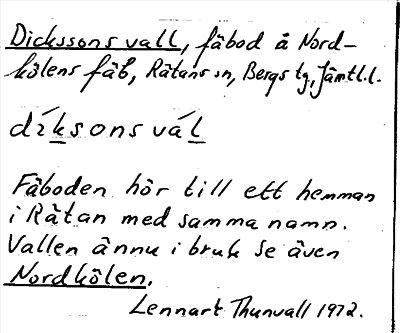 Dickssons vall, fäbod å Nord-
kölens fäb, Rätans sn, Bergs tg, Jämtl.l.
díksonsvál
Fäboden hör till ett hemman
i Rätan med samma namn.
Vallen ännu i bruk se även
Nordkölen.
Lennart Thunvall 1972.